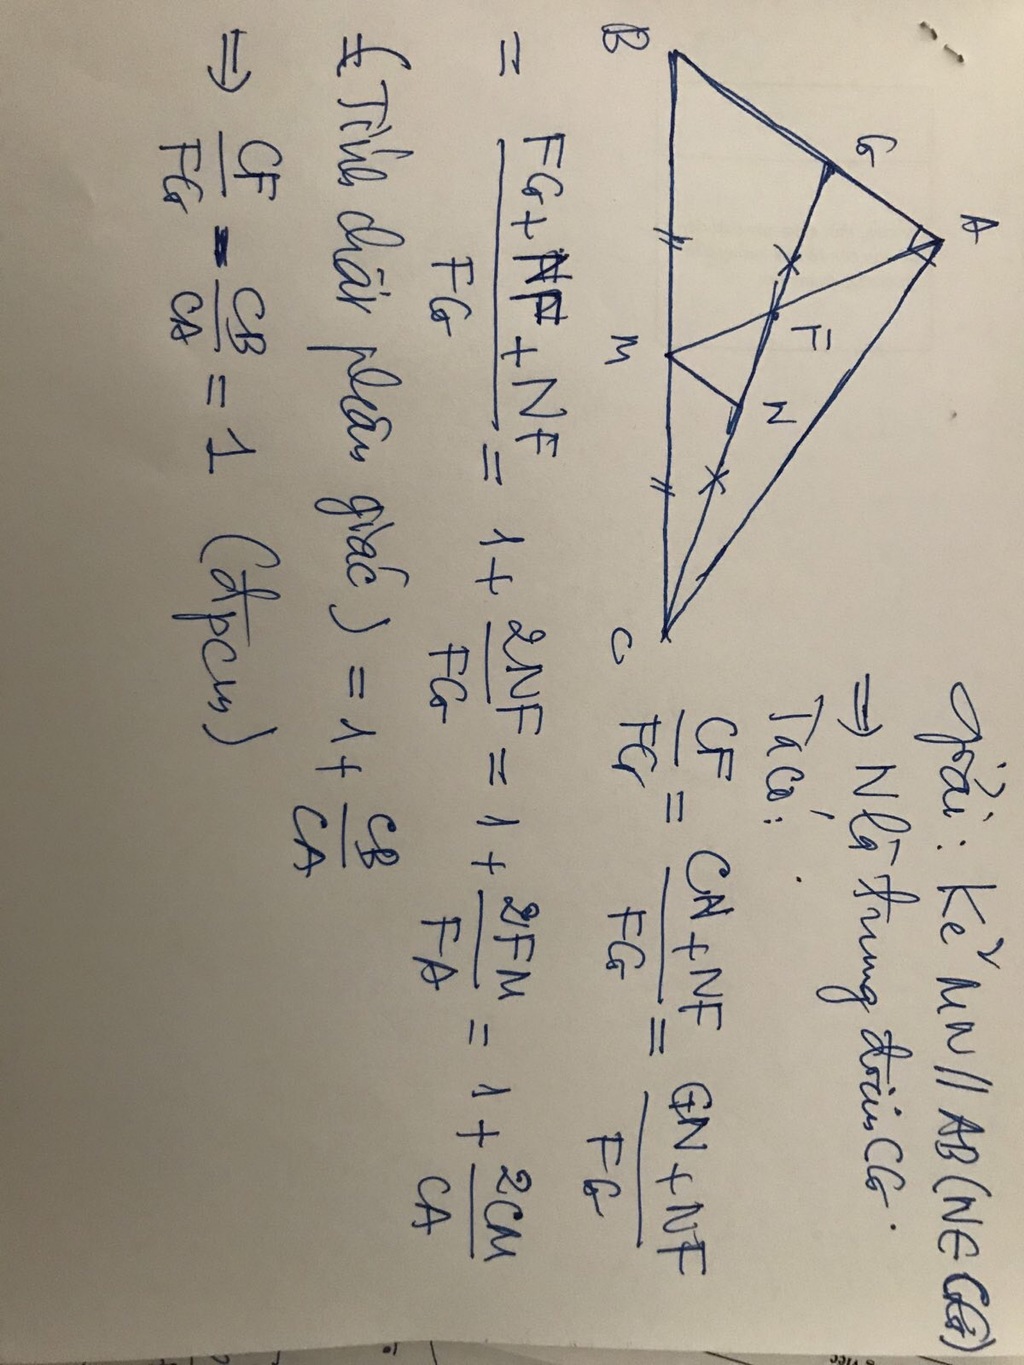 A
G
B
F
M
N
C
Giải: Kẻ MN // AB (N ∈ CG)
⇒ N là trung điểm CG.
Ta có:
CF/FG = CN + NF/FG = GN + NF/FG
= FG + NF + NF/FG = 1 + 2NF/FG = 1 + 2FM/FA = 1 + 2CM/CA
(Tính chất phân giác) = 1 + CB/CA
⇒ CF/FG - CB/CA = 1 (đpcm)